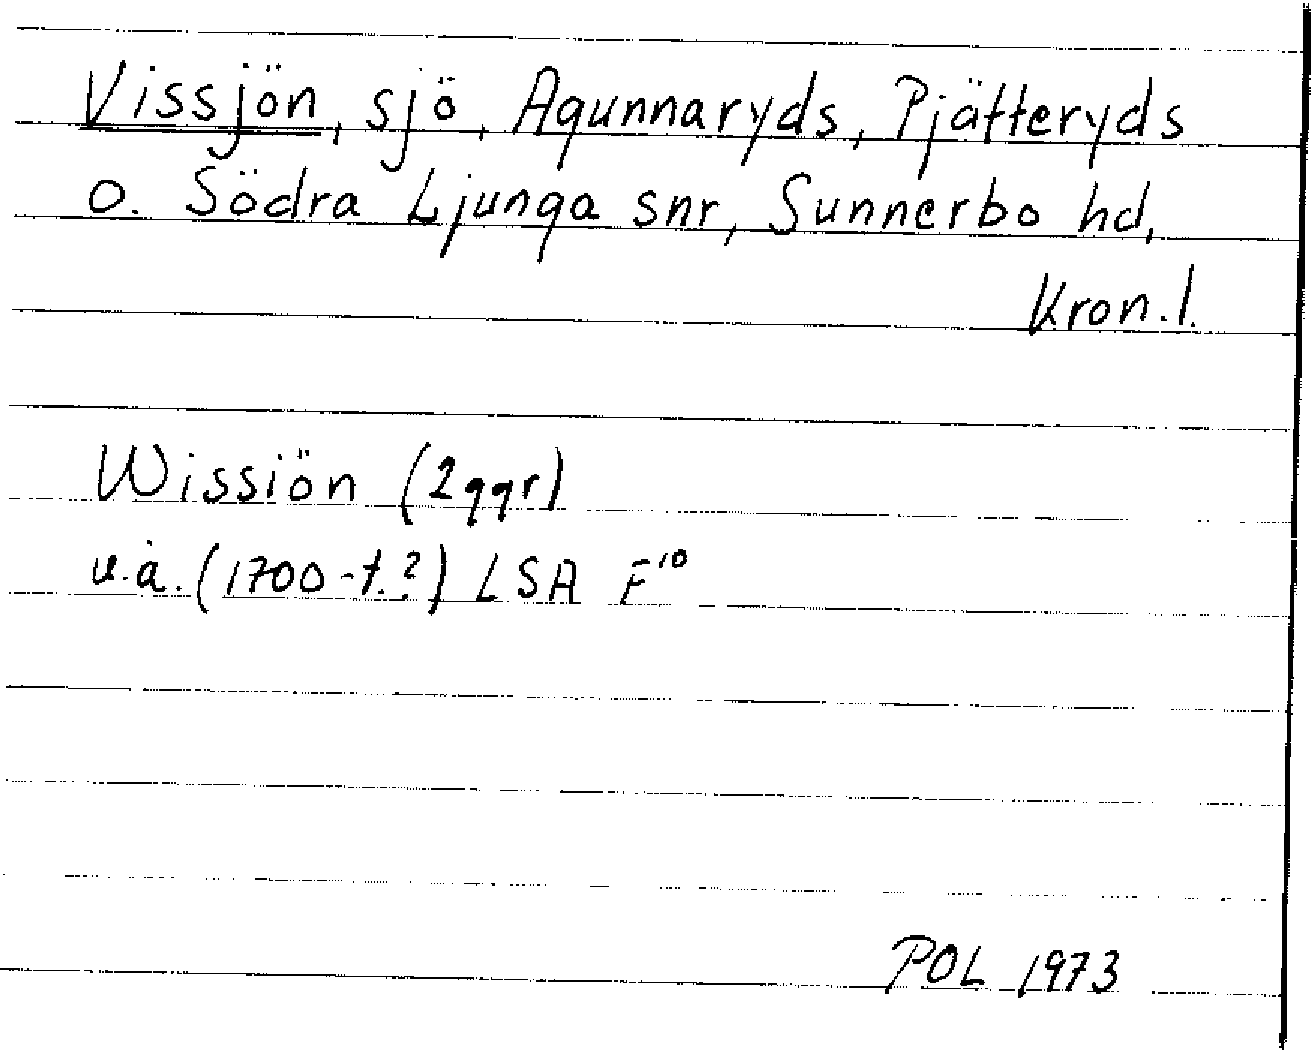 Vissjön, sjö, Agunnaryds, Pjätteryds
o. Södra Ljunga snr, Sunnerbo hd,
Kron. l.
Wissiön (2 ggr)
u.å. (1700-t.?) LSA F¹⁰
POL 1973